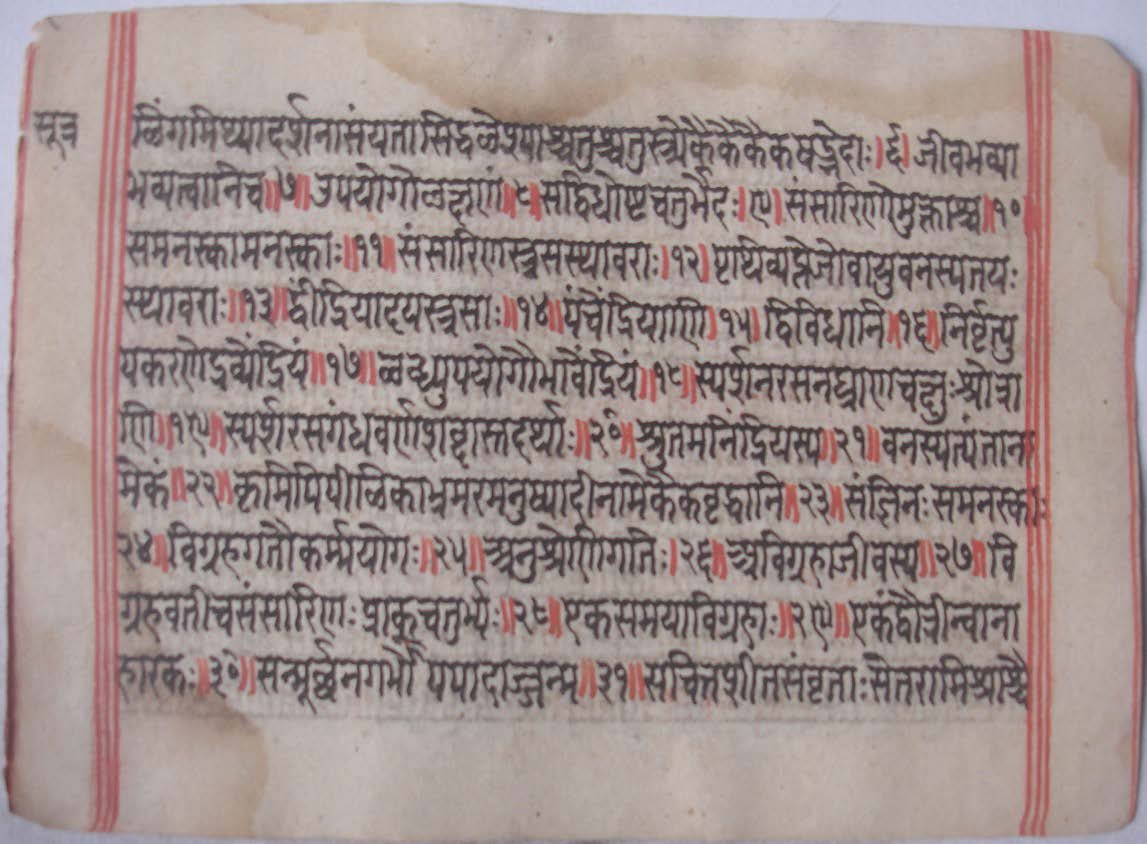 सूत्र
ळिंगमिथ्यादर्शनासंयतासिद्धळेश्याश्चतुश्चतुस्त्र्येकैकैकैकषड्भेदाः।६। जीवभव्या
भव्यत्वानिच॥७॥उपयोगोळक्षणं॥८॥सद्विधोष्टचतुर्भेदः।९॥संसारिणोमुक्ताश्च॥१०
समनस्कामनस्काः॥११॥संसारिणस्त्रसस्थावराः।१२॥पृथिव्यप्तेजोवायुवनस्पतयः
स्थावराः॥१३॥द्वींद्रियादयस्त्रसाः॥१४॥पंचेंद्रियाणि।१५॥द्विविधानि॥१६॥निर्वृत्यु
पकरणेद्रव्येंद्रियं॥१७॥ळब्ध्युपयोगौभावेंद्रियं॥१८॥स्पर्शनरसनघ्राणचक्षुःश्रोत्रा
णि॥१९॥स्पर्शरसगंधवर्णशब्दास्तदर्थाः॥२०॥श्रुतमनिंद्रियस्य॥२१॥वनस्पत्यंताना
मेकं॥२२॥कृमिपिपीळिकाभ्रमरमनुष्यादीनामेकैकवृद्धानि॥२३॥संज्ञिनःसमनस्काः
२४॥विग्रहगतौकर्म्मयोगः॥२५॥अनुश्रेणिगतिः।२६॥अविग्रहाजीवस्य॥२७॥वि
ग्रहवतीचसंसारिणःप्राक्चतुर्भ्यः॥२८॥एकसमयाविग्रहाः॥२९॥एकंद्वौत्रीन्वाना
हारकः॥३०॥सन्मूर्छनगर्भोपपादाज्जन्म॥३१॥सचित्तशीतसंवृताःसेतरामिश्राश्चै